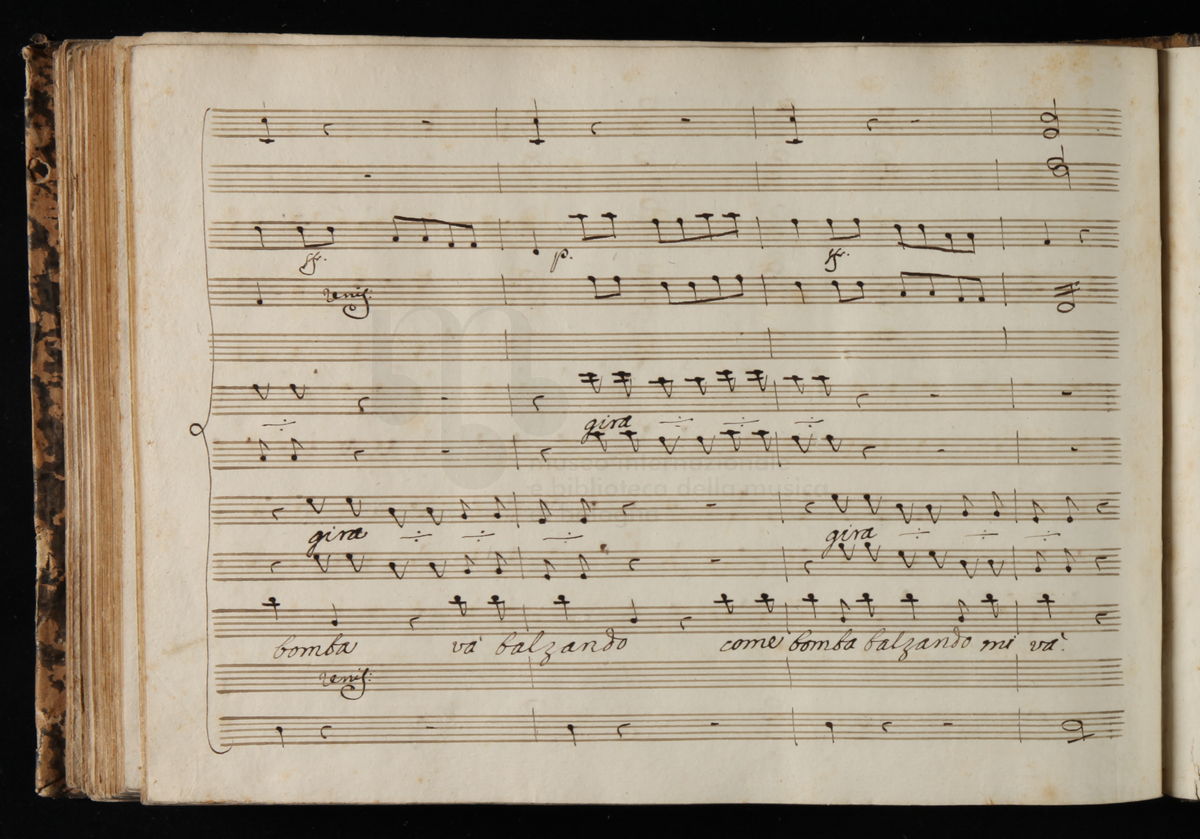 sf. p. sf.
unis:
gira
museo internazionale
e biblioteca della musica
gira gira
bomba và balzando come bomba balzando mi và.
unis: